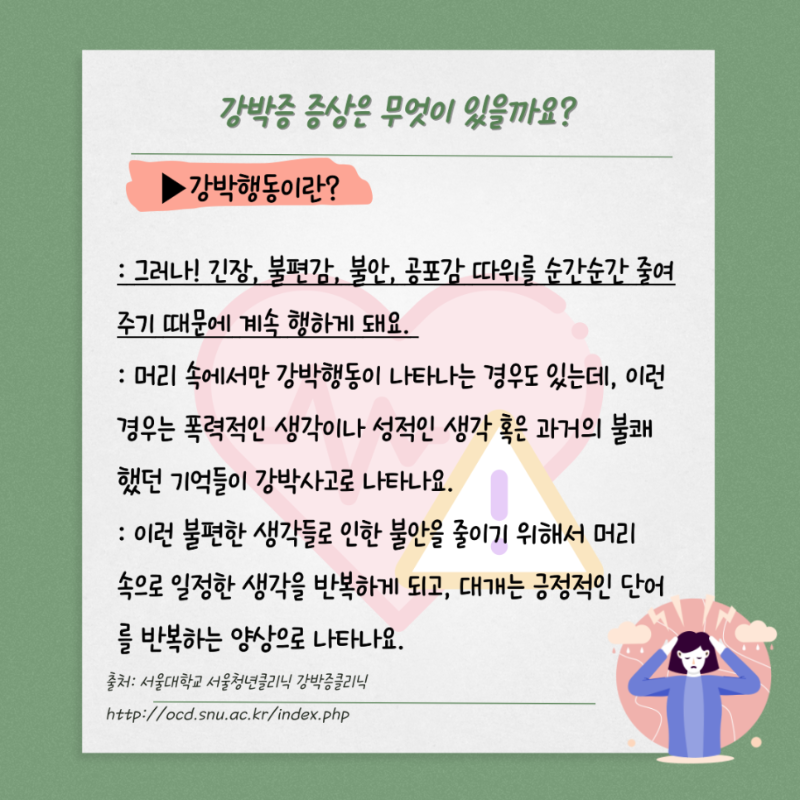 강박증 증상은 무엇이 있을까요?
▶강박행동이란?
: 그러나! 긴장, 불편감, 불안, 공포감 따위를 순간순간 줄여
주기 때문에 계속 행하게 돼요.
: 머리 속에서만 강박행동이 나타나는 경우도 있는데, 이런
경우는 폭력적인 생각이나 성적인 생각 혹은 과거의 불쾌
했던 기억들이 강박사고로 나타나요.
: 이런 불편한 생각들로 인한 불안을 줄이기 위해서 머리
속으로 일정한 생각을 반복하게 되고, 대개는 긍정적인 단어
를 반복하는 양상으로 나타나요.
출처: 서울대학교 서울청년클리닉 강박증클리닉
http://ocd.snu.ac.kr/index.php